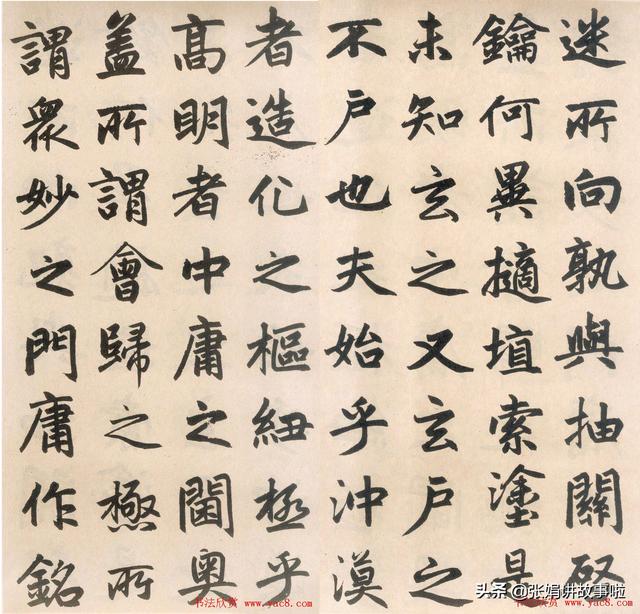 迷所向孰與抽關啓
鑰何異擿埴索塗是
未知玄之又玄戶之
不戶也夫始乎沖漠
者造化之樞紐極乎
高明者中庸之閫奥
蓋所謂會歸之極所
謂衆妙之門庸作銘
书法欣赏 www.yac8.com
书法欣赏 www.yac8.com
头条 @张娟讲故事啦